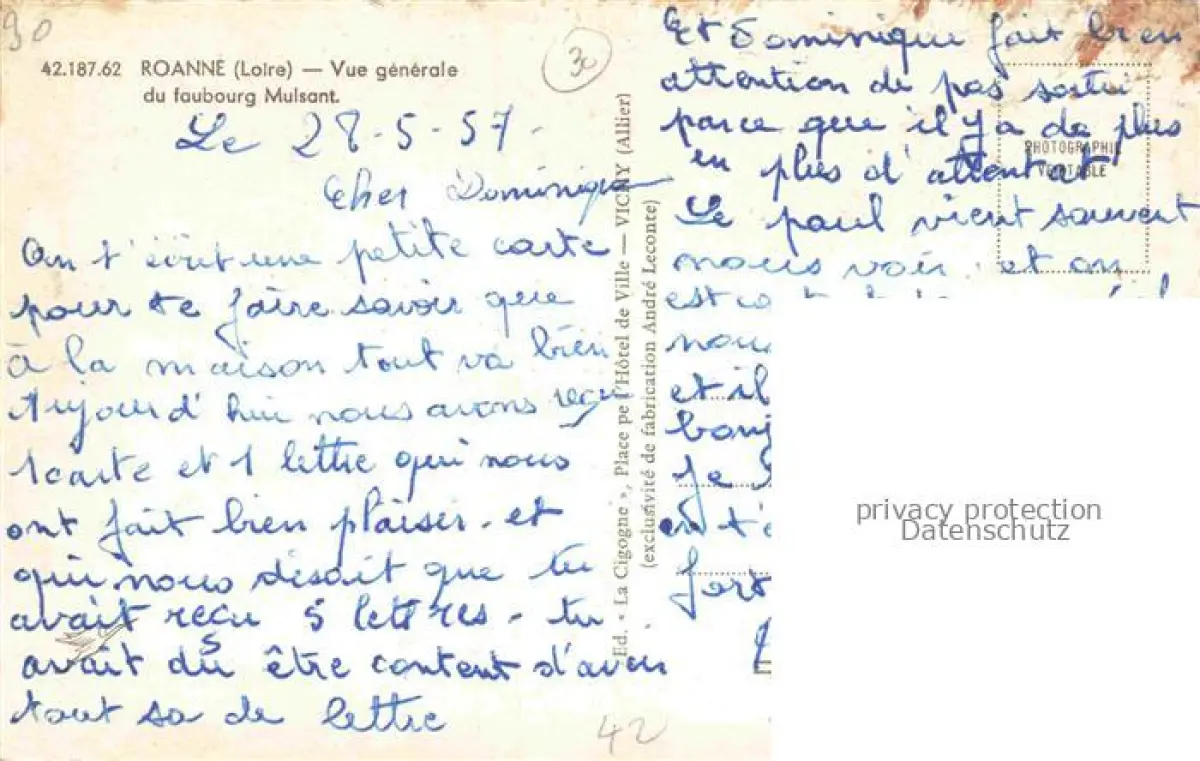 90
30
42.187.62 ROANNE (Loire) — Vue générale
du faubourg Mulsant.
Le 28-5-57-
Cher Dominique
On t'écrit une petite carte
pour te faire savoir que
à la maison tout va bien
Aujourd'hui nous avons reçu
1 carte et 1 lettre qui nous
ont fait bien plaisir. et
qui nous disait que tu
avait reçu 5 lettres - tu
avait dû être content d'avoir
tout sa de lettre
42
Ed. « La Cigogne », Place pe l'Hôtel de Ville — VICHY (Allier)
(exclusivité de fabrication André Leconte)
PHOTOGRAPHIE
VERITABLE
Et Dominique fait bien
attention de pas sortir
parce que il y a de plus
en plus d'attentat
Le paul vient souvent
nous voir. et on
est
nous
et il
bonj
je
on t'
fort
privacy protection
Datenschutz